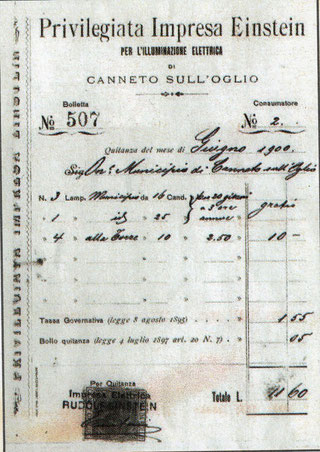 Privilegiata Impresa Einstein
PER L'ILLUMINAZIONE ELETTRICA
DI
CANNETO SULL'OGLIO
Bolletta Consumatore
No 507 No 2.
Quitanza del mese di Giugno 1900.
Sig. On. Municipio di Canneto sull'Oglio
N. 3 Lamp. Municipio da 16 Cand. per 20 giorni gratis
" 1 " id " 25 " a 3 ore annue
" 4 " alla Torre " 10 " 2,50 " 10 —
" " " "
" " " "
Tassa Governativa (legge 8 agosto 1895) 1 55
Bollo quitanza (legge 4 luglio 1897 art. 20 N. 7) 05
Per Quitanza
Impresa Elettrica
RUDOLF EINSTEIN
Totale L. 11 60
PRIVILEGIATA IMPRESA ELETTRICA